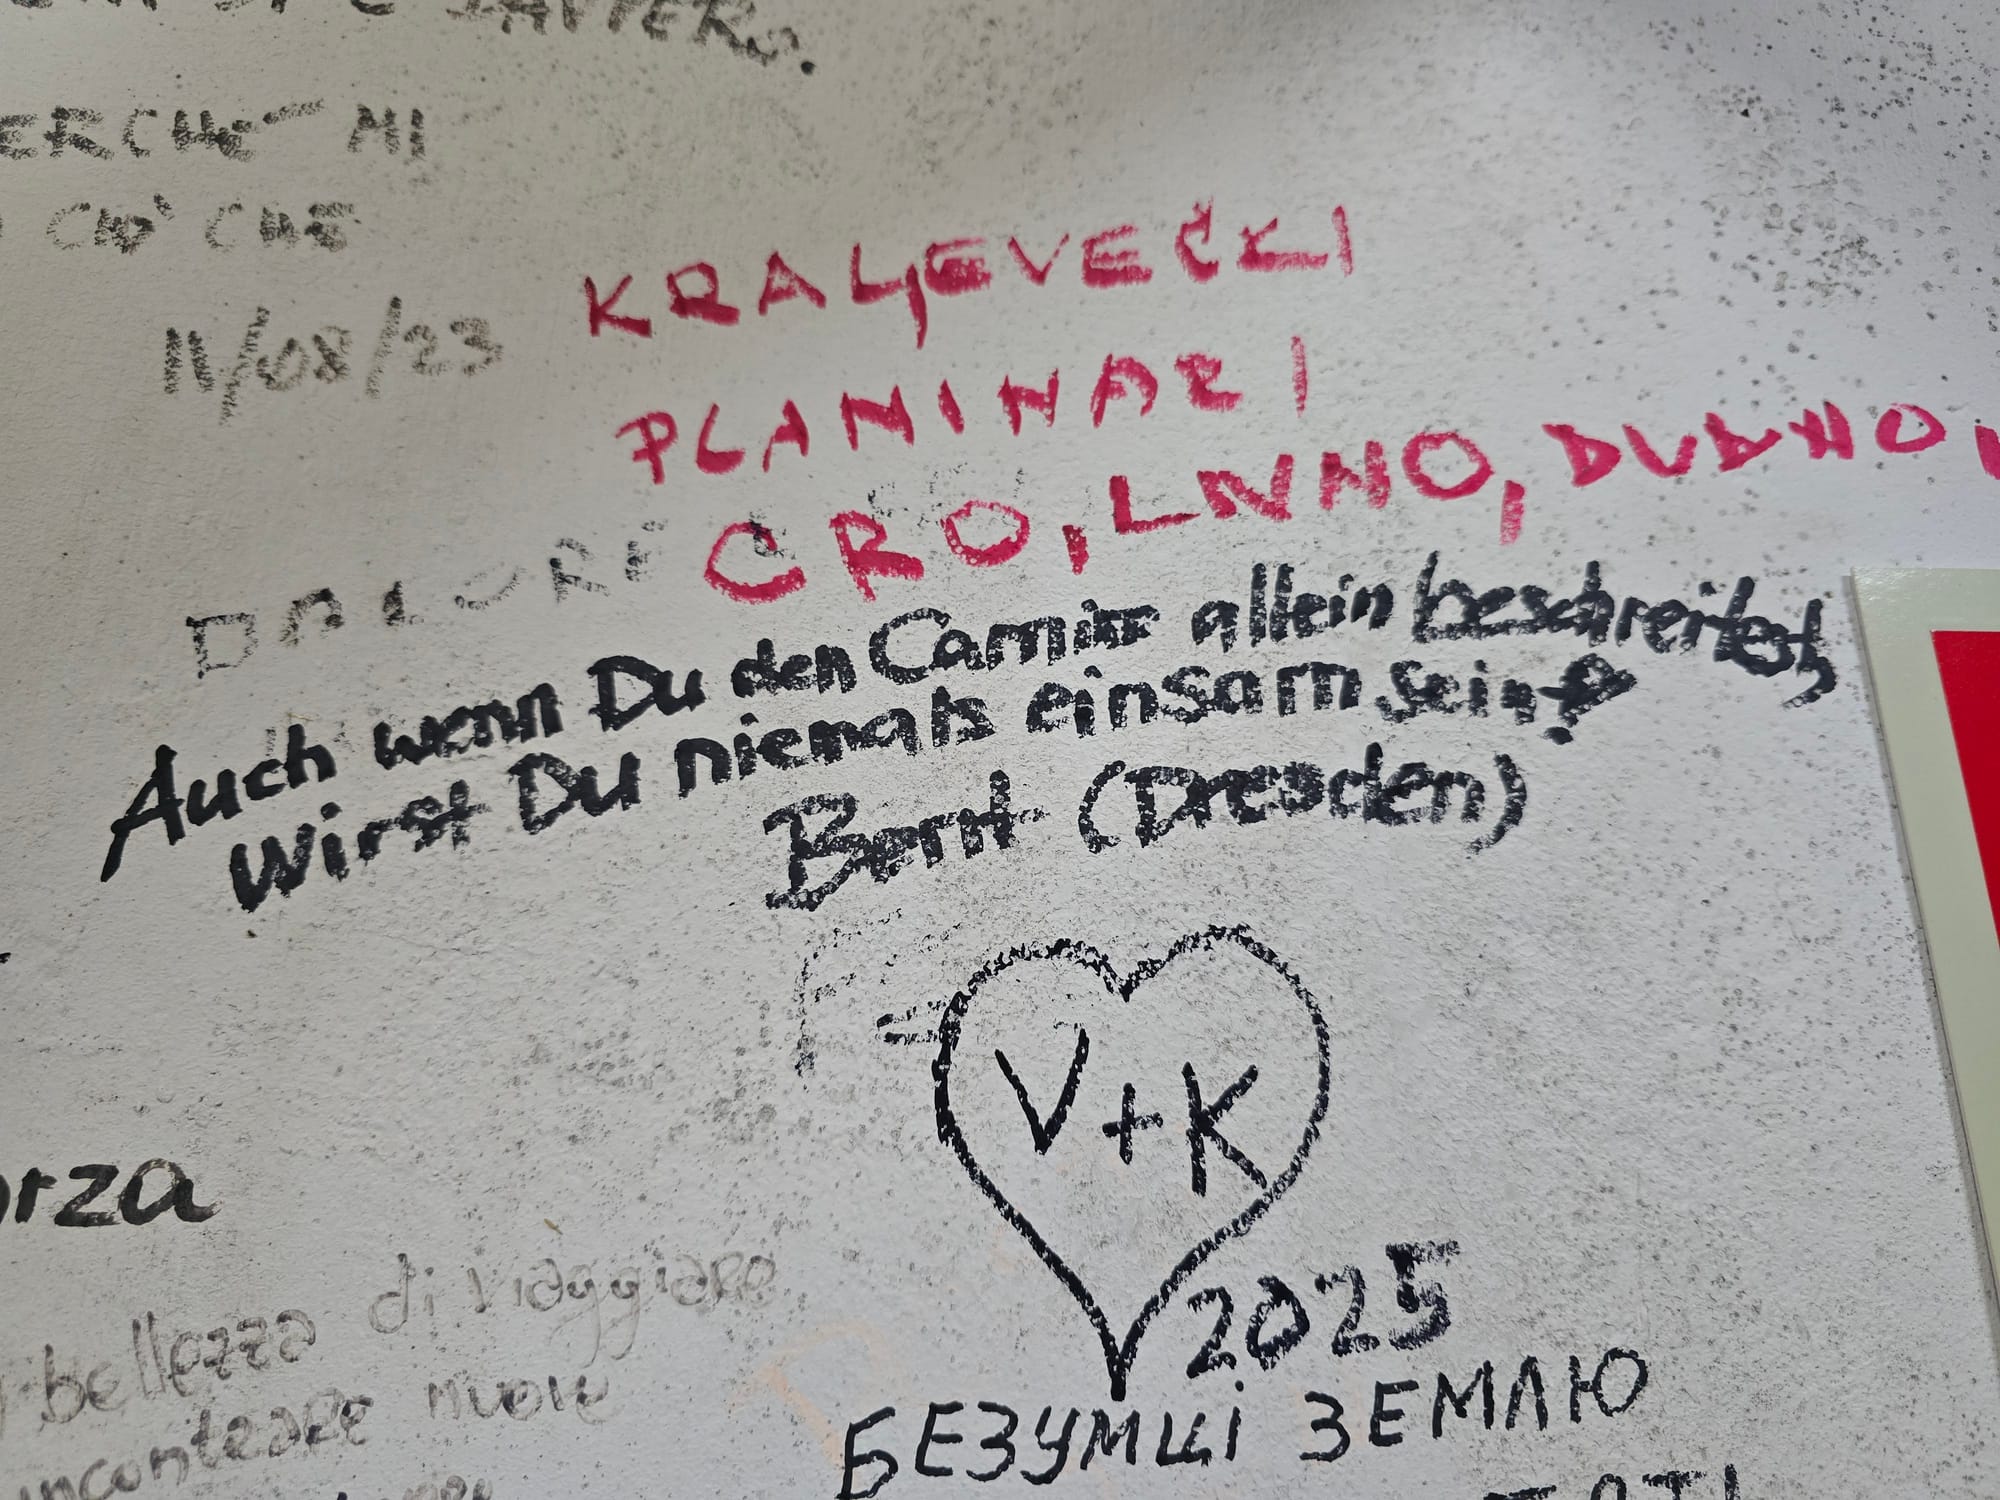 MI
CIO' CHE
11/08/23
KRALJEVEČKI
PLANINARI
CRO, LIVNO, DUBNO,
Auch wenn Du den Camino allein beschreitest,
wirst Du niemals einsam sein!
Bernt (Dresden)
V+K
2025
БЕЗУМЦІ ЗЕМЛЮ
bellezza di viaggiare
incontrare nuove